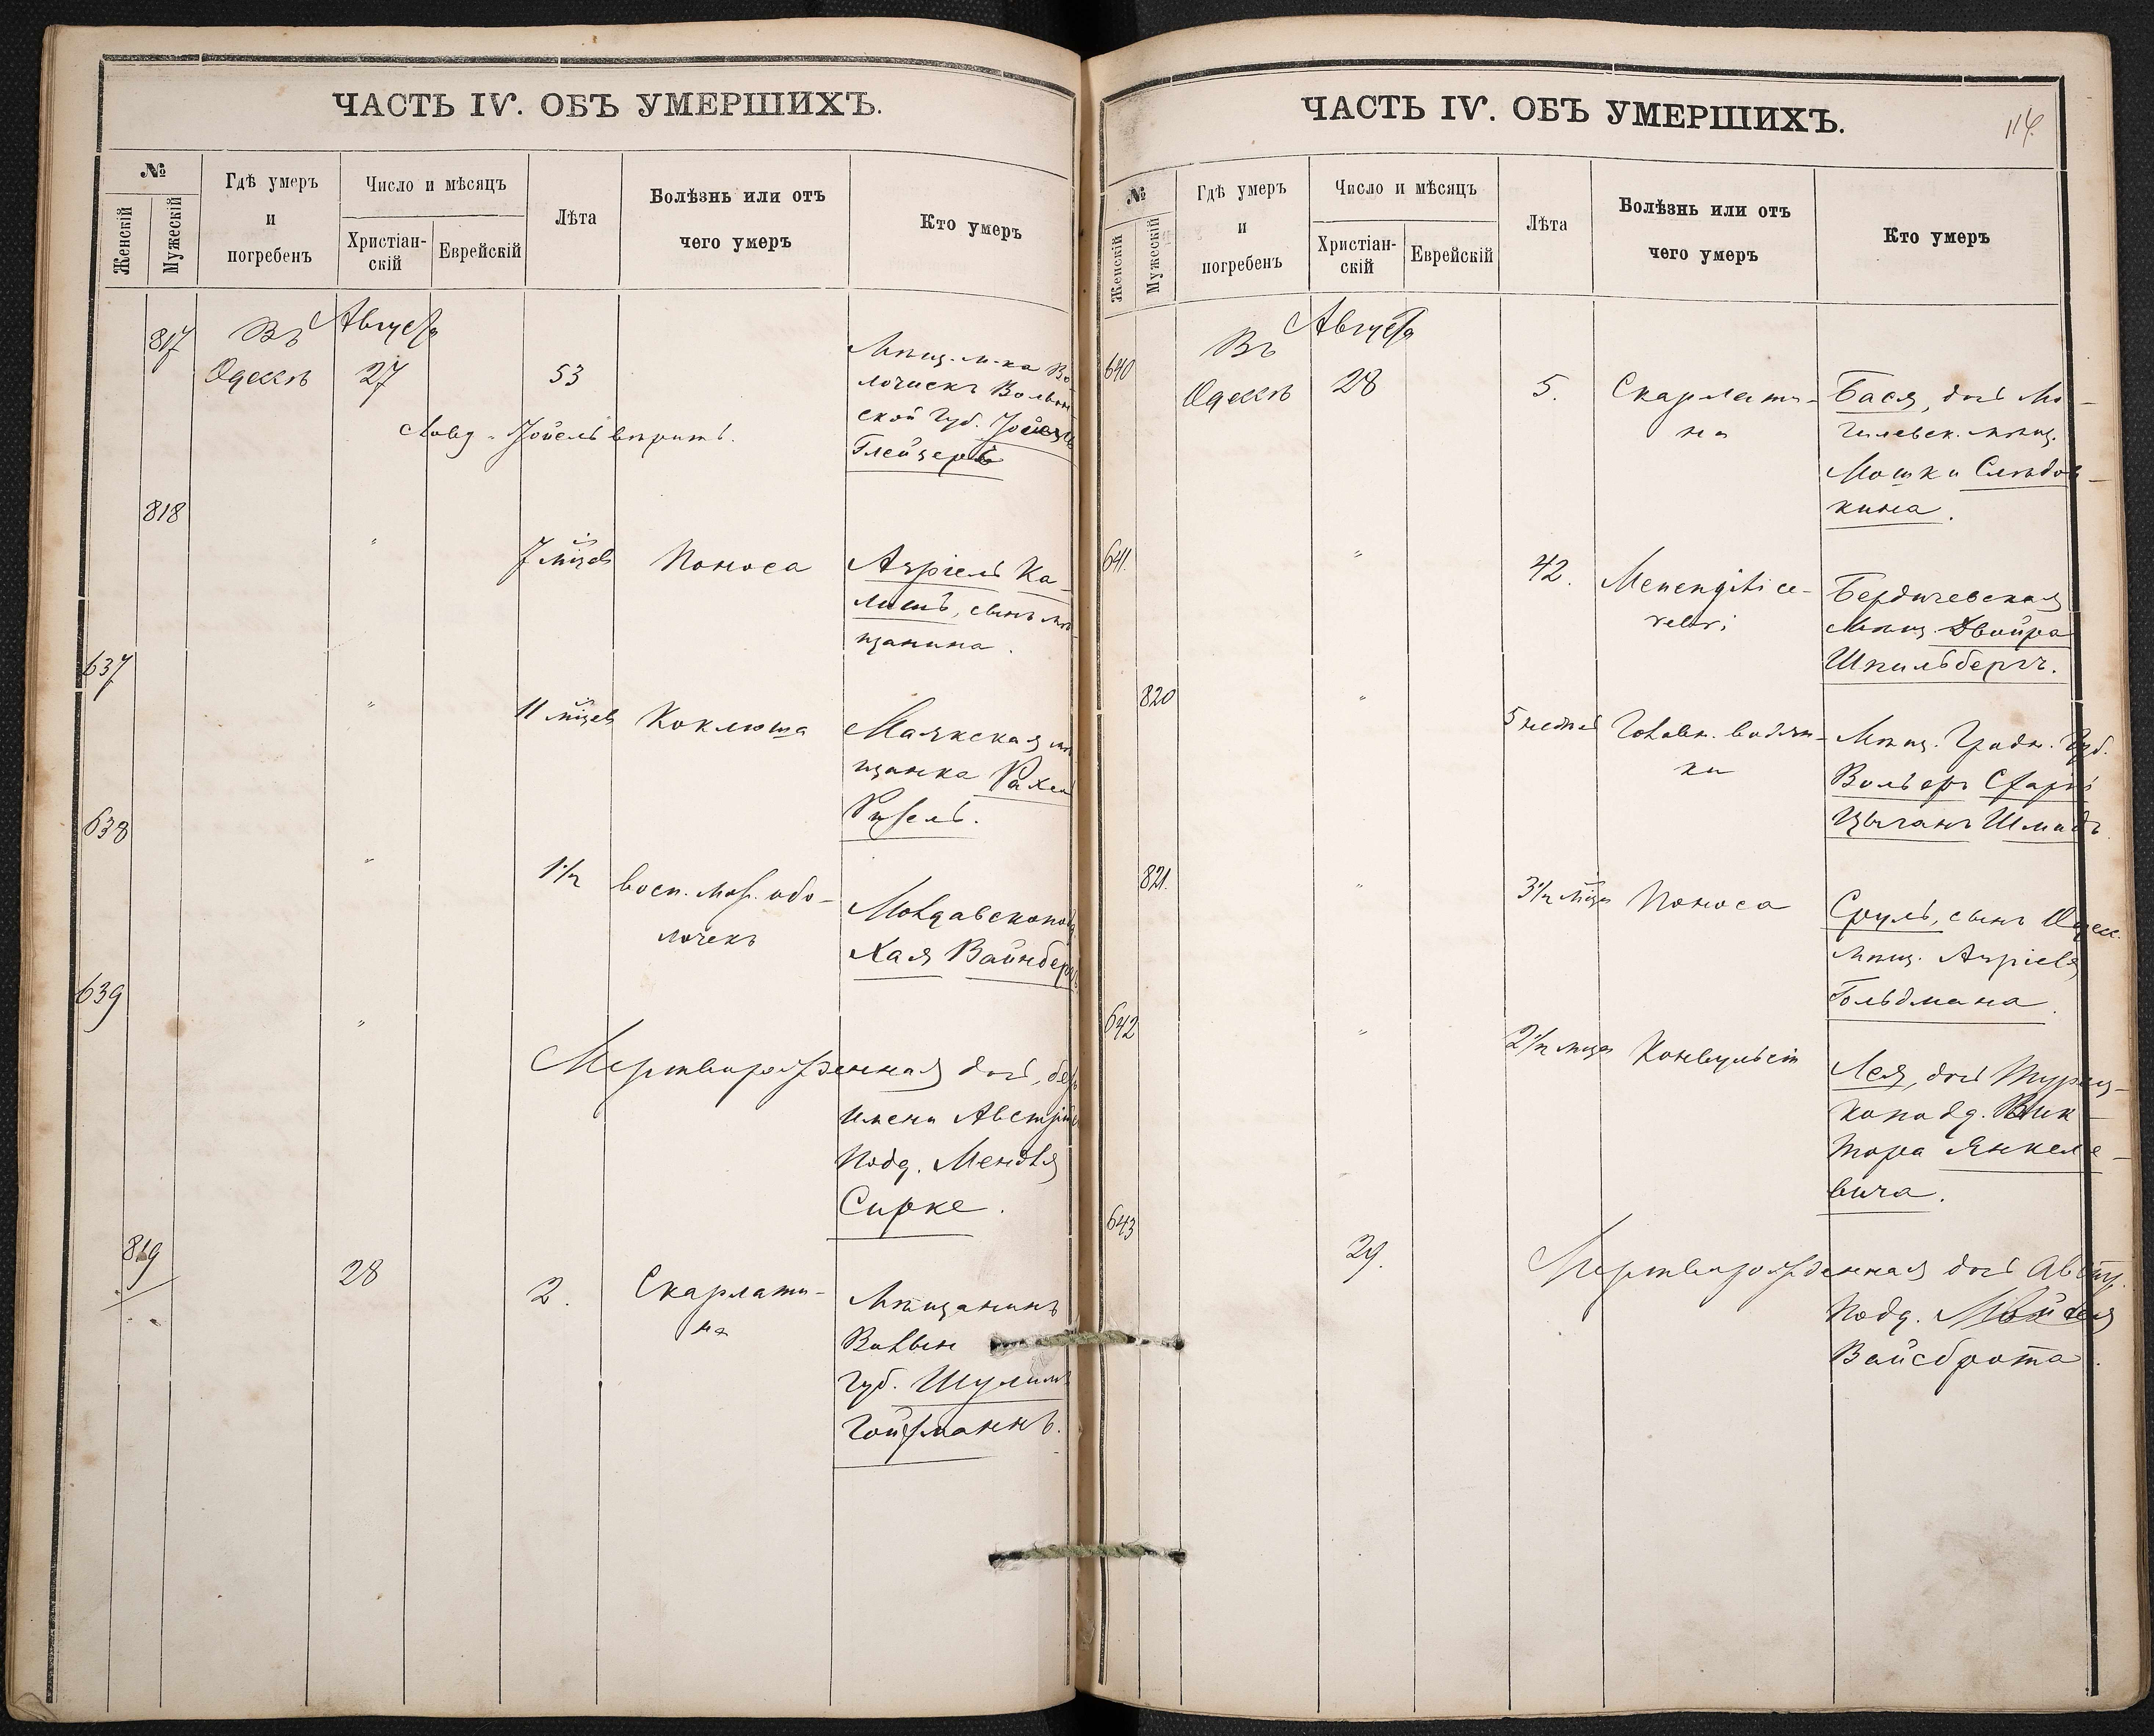 ЧАСТЬ IV. ОБЪ УМЕРШИХЪ.
№
Женскій
Мужескій
Гдѣ умеръ
и
погребенъ
Число и мѣсяцъ
Христіан-
скій
Еврейскій
Лѣта
Болѣзнь или отъ
чего умеръ
Кто умеръ
817
Въ Августа
Одессѣ 27 53
Мѣщ. м-ка Во
лочискъ Волын
ской Губ. Іойель
Глейзеръ
Іойель вѣрить.
818
" 7 мѣцевъ Поноса
Азріель Ка-
лишъ, сынъ мѣ-
щанина.
637
" 11 мѣцевъ Коклюша
Маякская мѣ
щанка Рахель
Ризель.
638
" 1½ Восп. мозг. обо-
лочекъ
Молдавскопод.
Хая Вайнбергъ
639
" Мертворожденная дочь, безъ
имени Австрійск
Подд. Менделя
Сирке.
819
28 2. Скарлати-
на
Мѣщанинъ
Волын
Губ. Шулимъ
Гойфманнъ.
ЧАСТЬ IV. ОБЪ УМЕРШИХЪ.
114
№
Женскій
Мужескій
Гдѣ умеръ
и
погребенъ
Число и мѣсяцъ
Христіан-
скій
Еврейскій
Лѣта
Болѣзнь или отъ
чего умеръ
Кто умеръ
640
Въ Августа
Одессѣ 28 5. Скарлати-
на
Бася, дочь Мо-
гилевск. мѣщ.
Мошки Слѣдов-
кина.
641.
" 42. Menengiti ce-
rebri
Бердичевская
Мѣщ. Двойра
Шпильбергъ.
820
" 5 недѣль Головн. водян-
ки
Мѣщ. Гродн. Губ.
Вольфъ
Цыганъ
821.
" 3½ мѣця Поноса
Сруль, сынъ Одесс.
Мѣщ. Азріеля
Гольдмана.
642
" 2½ мѣця Конвульсій
Лея, дочь Турец-
коподд. Вик-
тора Янкеле-
вича.
643
29. Мертворожденная дочь Австр.
Подд. Мойсея
Вайсброта.